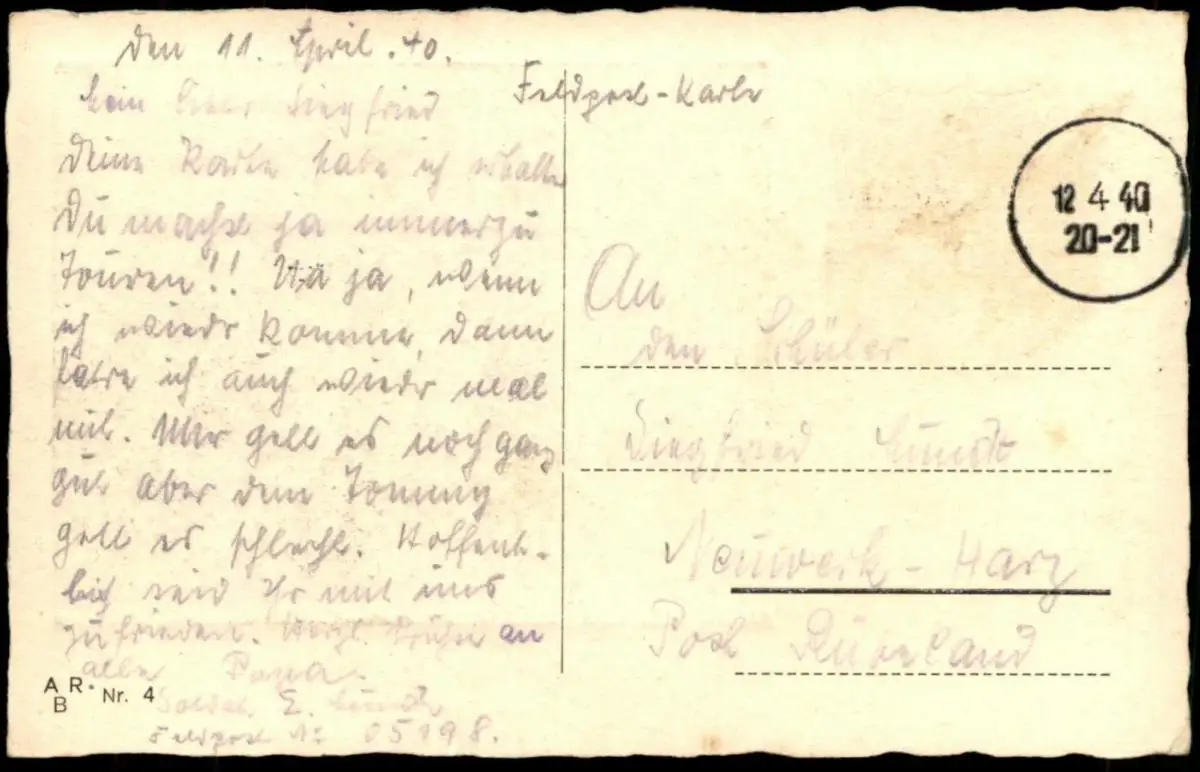 Den 11. April. 40.
Mein lieber Siegfried
Deine Karte habe ich erhalten
Du machst ja immerzu
Touren!! Na ja, wenn
ich wieder komme, dann
fahre ich auch wieder mal
mit. Mir geht es noch ganz
gut aber dem Tommy
geht es schlecht. Hoffent-
lich seid Ihr mit uns
zufrieden. Herzl. Grüße an
alle Papa.
Soldat. E.
Feldpost Nr 05198.
A R. Nr. 4
B
Feldpost-Karte
12 4 40
20-21
An
den Schüler
Siegfried
Neuwerk - Harz
Post Rübeland